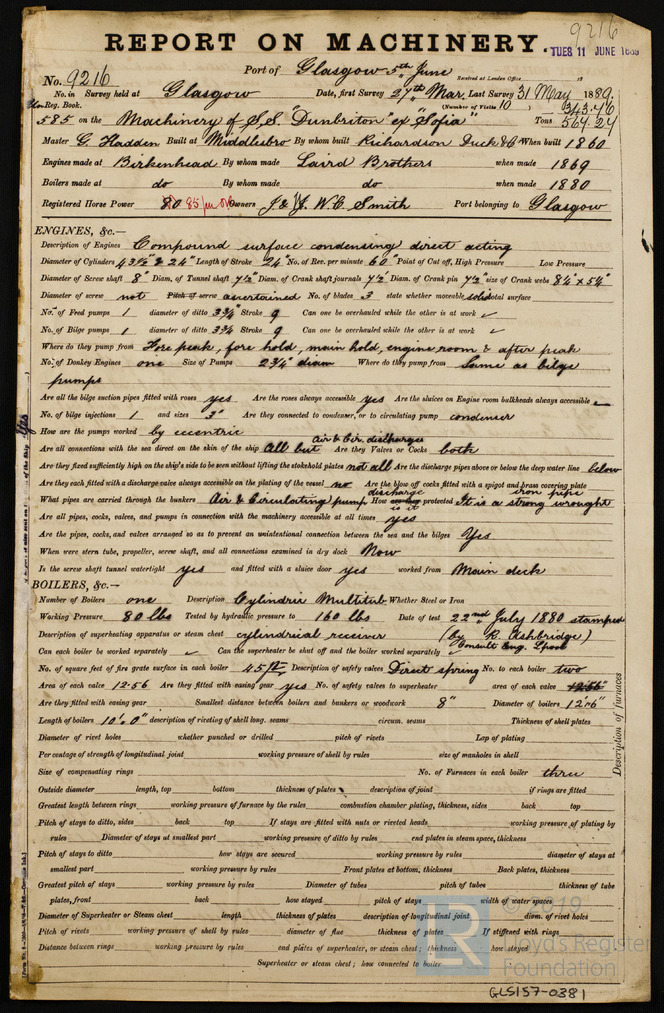 9216
REPORT ON MACHINERY.
TUES 11 JUNE 1889
Port of Glasgow 5th June
Received at London Office 18
No. 9216
No. in Survey held at Glasgow Date, first Survey 27th Mar. Last Survey 31 May 1889.
Reg. Book. (Number of Visits 10) 343.46
585 on the Machinery of S.S. "Dunbriton" ex "Sofia" Tons 564.24
Master G. Hadden Built at Middlesbro By whom built Richardson Duck & Co When built 1860
Engines made at Birkenhead By whom made Laird Brothers when made 1869
Boilers made at do By whom made do when made 1880
Registered Horse Power 80 85 Owners J & J. W. C. Smith Port belonging to Glasgow
ENGINES, &c.—
Description of Engines Compound surface condensing direct acting
Diameter of Cylinders 43½" & 24" Length of Stroke 24" No. of Rev. per minute 60 Point of Cut off, High Pressure Low Pressure
Diameter of Screw shaft 8" Diam. of Tunnel shaft 7½" Diam. of Crank shaft journals 7½" Diam. of Crank pin 7½" size of Crank webs 8¼" x 5¼"
Diameter of screw not Pitch of screw ascertained No. of blades 3 state whether moveable solid total surface
No. of Feed pumps 1 diameter of ditto 3¾" Stroke 9 Can one be overhauled while the other is at work ✓
No. of Bilge pumps 1 diameter of ditto 3¾" Stroke 9 Can one be overhauled while the other is at work ✓
Where do they pump from Fore peak, fore hold, main hold, engine room & after peak
No. of Donkey Engines one Size of Pumps 2¾" diam Where do they pump from Same as bilge
pumps
Are all the bilge suction pipes fitted with roses yes Are the roses always accessible yes Are the sluices on Engine room bulkheads always accessible
No. of bilge injections 1 and sizes 3" Are they connected to condenser, or to circulating pump condenser
How are the pumps worked by eccentric
Air & Cir. discharges
Are all connections with the sea direct on the skin of the ship All but Are they Valves or Cocks both
Are they fixed sufficiently high on the ship's side to be seen without lifting the stokehold plates not all Are the discharge pipes above or below the deep water line below
Are they each fitted with a discharge valve always accessible on the plating of the vessel no Are the blow off cocks fitted with a spigot and brass covering plate
discharge iron pipe
What pipes are carried through the bunkers Air & Circulating pump How are they protected It is a strong wrought
is it
Are all pipes, cocks, valves, and pumps in connection with the machinery accessible at all times yes
Are the pipes, cocks, and valves arranged so as to prevent an unintentional connection between the sea and the bilges Yes
When were stern tube, propeller, screw shaft, and all connections examined in dry dock Now
Is the screw shaft tunnel watertight yes and fitted with a sluice door yes worked from Main deck
BOILERS, &c.—
Number of Boilers one Description Cylindric Multitub Whether Steel or Iron
Working Pressure 80 lbs Tested by hydraulic pressure to 160 lbs Date of test 22nd July 1880 stamped
Description of superheating apparatus or steam chest cylindrical receiver (by R. Ashbridge)
Consult Eng. Lpool
Can each boiler be worked separately ✓ Can the superheater be shut off and the boiler worked separately
No. of square feet of fire grate surface in each boiler 45 ft Description of safety valves Direct spring No. to each boiler two
Area of each valve 12.56 Are they fitted with easing gear yes No. of safety valves to superheater area of each valve 12.56"
Are they fitted with easing gear Smallest distance between boilers and bunkers or woodwork 8" Diameter of boilers 12'.6"
Length of boilers 10'.0" description of riveting of shell long. seams circum. seams Thickness of shell plates
Diameter of rivet holes whether punched or drilled pitch of rivets Lap of plating
Percentage of strength of longitudinal joint working pressure of shell by rules size of manholes in shell
Size of compensating rings No. of Furnaces in each boiler three
Description of furnaces
Outside diameter length, top bottom thickness of plates description of joint if rings are fitted
Greatest length between rings working pressure of furnace by the rules combustion chamber plating, thickness, sides back top
Pitch of stays to ditto, sides back top If stays are fitted with nuts or riveted heads working pressure of plating by
rules Diameter of stays at smallest part working pressure of ditto by rules end plates in steam space, thickness
Pitch of stays to ditto how stays are secured working pressure by rules diameter of stays at
smallest part working pressure by rules Front plates at bottom, thickness Back plates, thickness
Greatest pitch of stays working pressure by rules Diameter of tubes pitch of tubes thickness of tube
plates, front back how stayed pitch of stays width of water spaces
Diameter of Superheater or Steam chest length thickness of plates description of longitudinal joint diam. of rivet holes
Pitch of rivets working pressure of shell by rules diameter of flue thickness of plates If stiffened with rings
Distance between rings working pressure by rules end plates of superheater, or steam chest; thickness how stayed
Superheater or steam chest; how connected to boiler
© 2019
LR
Lloyd's Register
Foundation
GLS157-0381